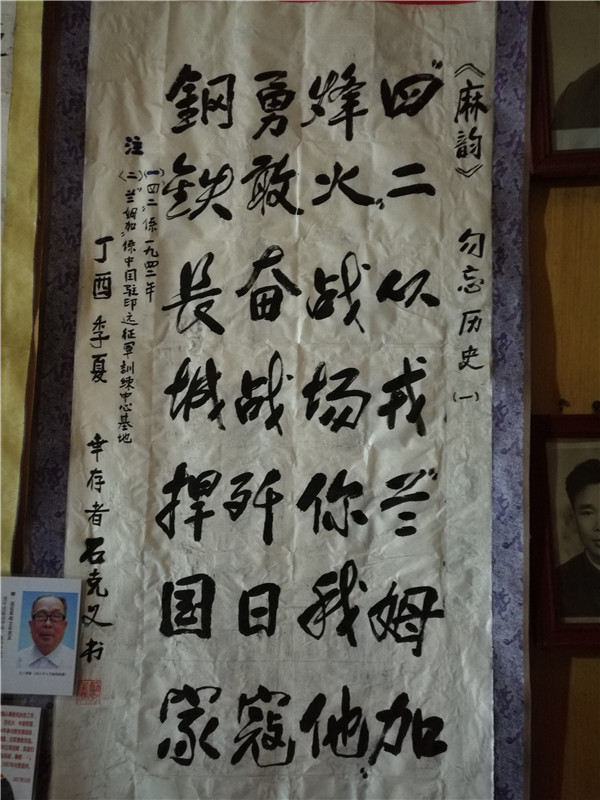 《麻韵》 勿忘历史(一)
“四二”从戎“兰姆加”
烽火战场你我他
勇敢奋战歼日寇
鋼鉄長城捍国家
注
(一)“四二”係一九四二年
(二)“兰姆加”係中国驻印远征军訓練中心基地
丁酉季夏 幸存者石克义书